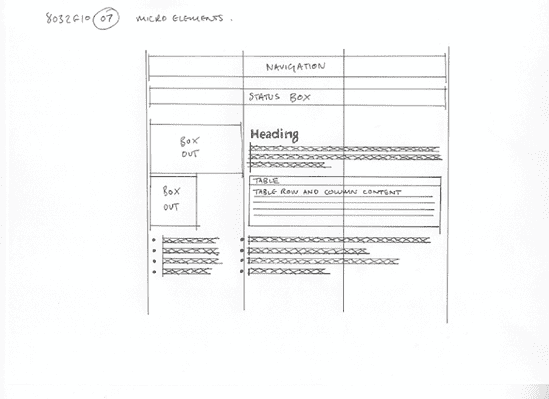 8032G10 07 MICRO ELEMENTS.
NAVIGATION
STATUS BOX
BOX
OUT
Heading
TABLE
TABLE ROW AND COLUMN CONTENT
BOX
OUT